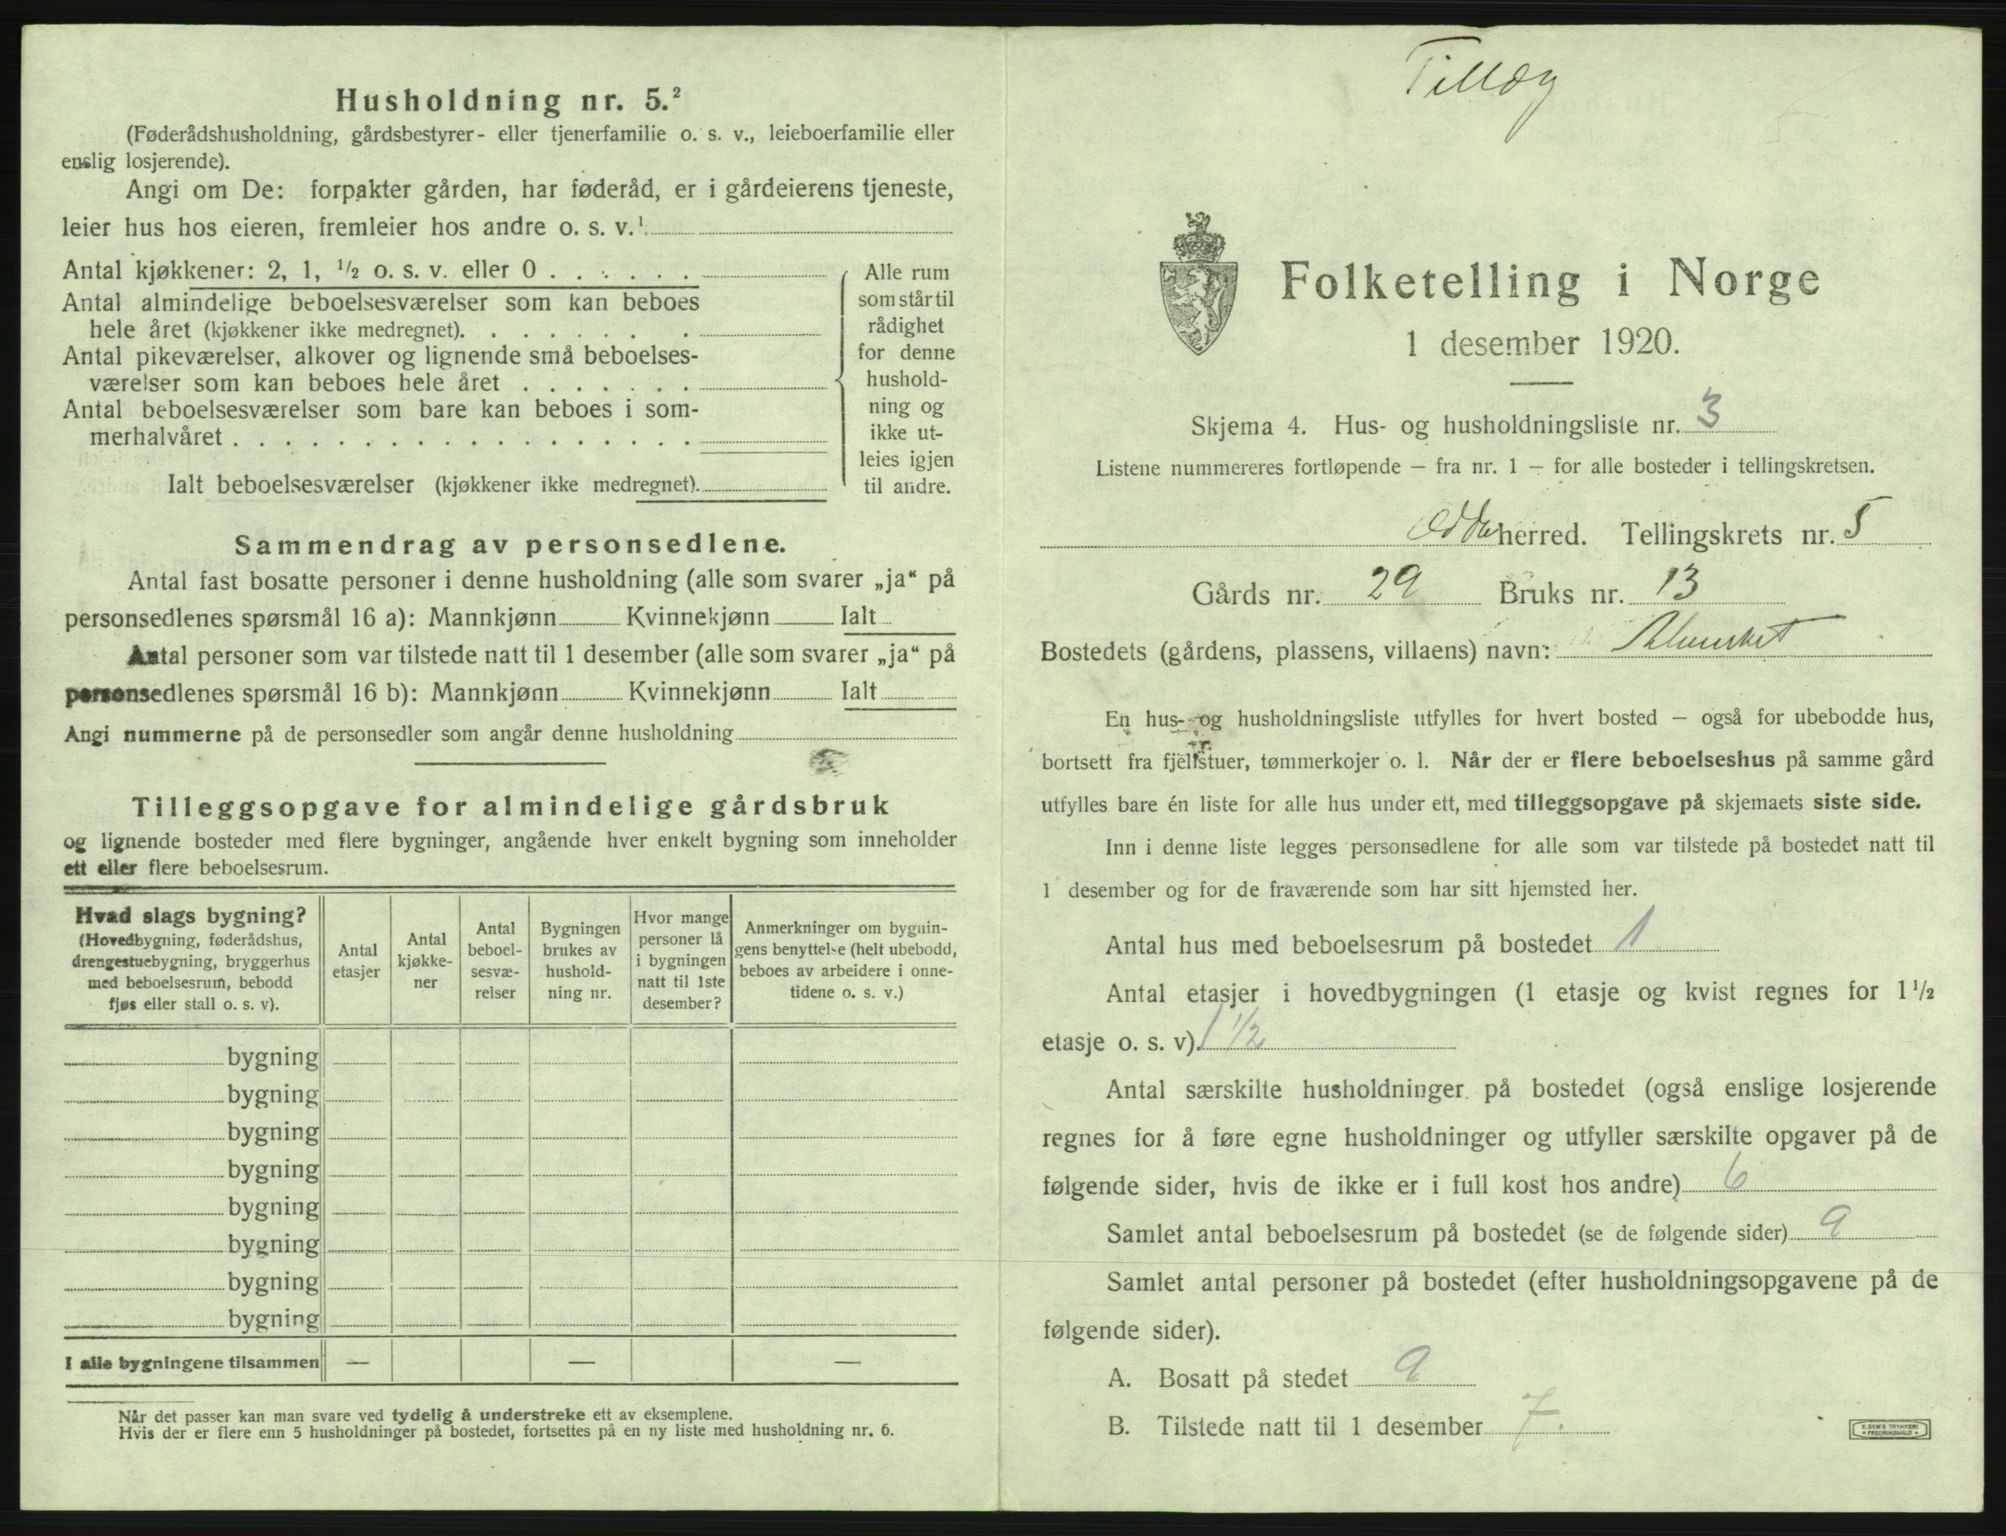 Husholdning nr. 5.²
(Føderådshusholdning, gårdsbestyrer- eller tjenerfamilie o. s. v., leieboerfamilie eller
enslig losjerende).
Angi om De: forpakter gården, har føderåd, er i gårdeierens tjeneste,
leier hus hos eieren, fremleier hos andre o. s. v.¹
Antal kjøkkener: 2, 1, ½ o. s. v. eller 0 . . . . . .
Antal almindelige beboelsesværelser som kan beboes
hele året (kjøkkener ikke medregnet). . . . . . . .
Antal pikeværelser, alkover og lignende små beboelses-
værelser som kan beboes hele året . . . . . . .
Antal beboelsesværelser som bare kan beboes i som-
merhalvåret . . . . . . . . . . . . . . . . . .
Ialt beboelsesværelser (kjøkkener ikke medregnet).
Alle rum
som står til
rådighet
for denne
hushold-
ning og
ikke ut-
leies igjen
til andre.
Sammendrag av personsedlene.
Antal fast bosatte personer i denne husholdning (alle som svarer „ja“ på
personsedlenes spørsmål 16 a): Mannkjønn Kvinnekjønn Ialt
Antal personer som var tilstede natt til 1 desember (alle som svarer „ja“ på
personsedlenes spørsmål 16 b): Mannkjønn Kvinnekjønn Ialt
Angi nummerne på de personsedler som angår denne husholdning
Tilleggsopgave for almindelige gårdsbruk
og lignende bosteder med flere bygninger, angående hver enkelt bygning som inneholder
ett eller flere beboelsesrum.
Hvad slags bygning?
(Hovedbygning, føderådshus,
drengestuebygning, bryggerhus
med beboelsesrum, bebodd
fjøs eller stall o. s. v).
Antal
etasjer
Antal
kjøkke-
ner
Antal
beboel-
sesvæ-
relser
Bygningen
brukes av
hushold-
ning nr.
Hvor mange
personer lå
i bygningen
natt til 1ste
desember?
Anmerkninger om bygnin-
gens benyttelse (helt ubebodd,
beboes av arbeidere i onne-
tidene o. s. v.)
bygning
bygning
bygning
bygning
bygning
bygning
bygning
bygning
I alle bygningene tilsammen — — —
Når det passer kan man svare ved tydelig å understreke ett av eksemplene.
Hvis der er flere enn 5 husholdninger på bostedet, fortsettes på en ny liste med husholdning nr. 6.
Tillæg
Folketelling i Norge
1 desember 1920.
Skjema 4. Hus- og husholdningsliste nr. 3
Listene nummereres fortløpende – fra nr. 1 – for alle bosteder i tellingskretsen.
Oddeherred. Tellingskrets nr. 5
Gårds nr. 29 Bruks nr. 13
Bostedets (gårdens, plassens, villaens) navn:
En hus- og husholdningsliste utfylles for hvert bosted – også for ubebodde hus,
bortsett fra fjellstuer, tømmerkojer o. l. Når der er flere beboelseshus på samme gård
utfylles bare én liste for alle hus under ett, med tilleggsopgave på skjemaets siste side.
Inn i denne liste legges personsedlene for alle som var tilstede på bostedet natt til
1 desember og for de fraværende som har sitt hjemsted her.
Antal hus med beboelsesrum på bostedet 1
Antal etasjer i hovedbygningen (1 etasje og kvist regnes for 1½
etasje o. s. v). 1 1/2
Antal særskilte husholdninger på bostedet (også enslige losjerende
regnes for å føre egne husholdninger og utfyller særskilte opgaver på de
følgende sider, hvis de ikke er i full kost hos andre) 6
Samlet antal beboelsesrum på bostedet (se de følgende sider) 9
Samlet antal personer på bostedet (efter husholdningsopgavene på de
følgende sider).
A. Bosatt på stedet 9
B. Tilstede natt til 1 desember 7.